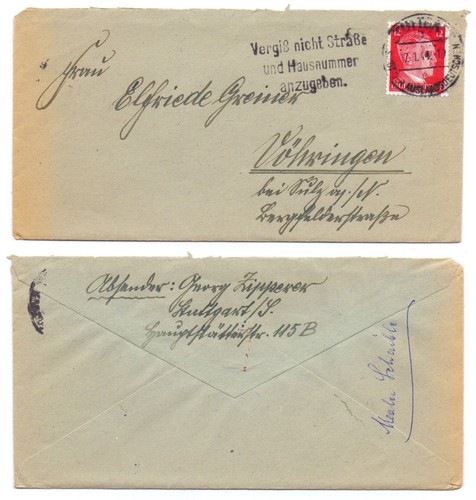 Vergiß nicht Straße
und Hausnummer
anzugeben.
12
12
Frau
Elfriede Greiner
Vöhringen
bei Sulz a/N.
Bergfelderstraße
Absender: Georg Zipperer
Stuttgart/S.
Hauptstätterstr. 115B